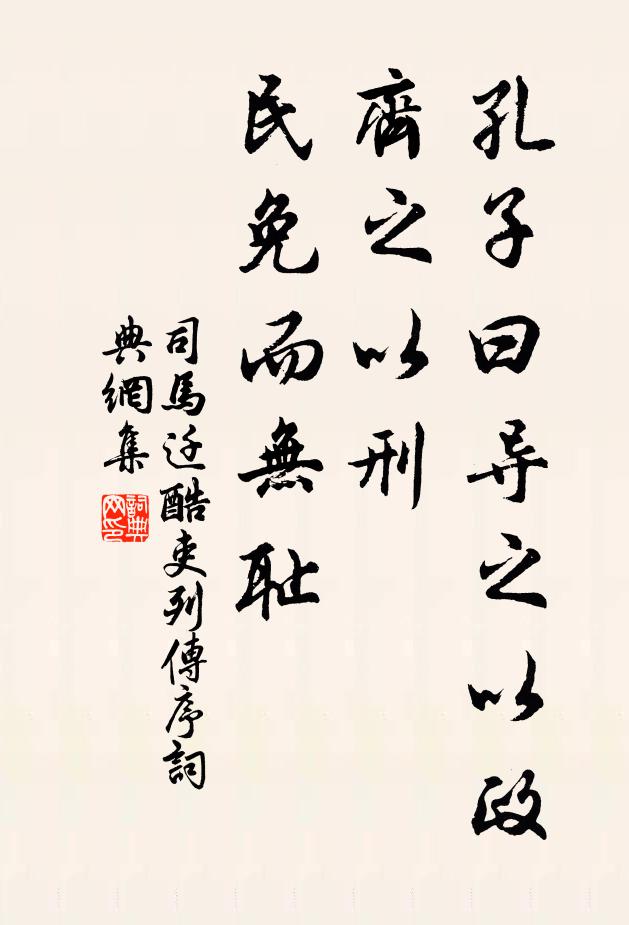 孔子曰导之以政
齊之以刑
民免而無耻
司馬迁酷吏列傳序詞
典網集
詞典網印